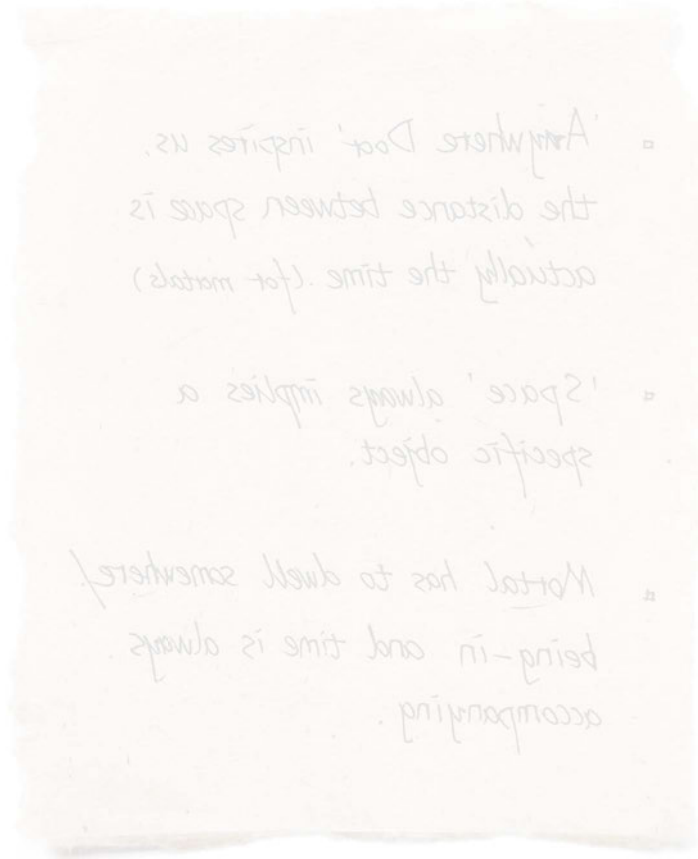 ▫ 'Anywhere Door' inspires us.
the distance between space is
actually the time. (for mortals)
▫ 'Space' always implies a
specific object.
▫ Mortal has to dwell somewhere/
being-in and time is always
accompanying.